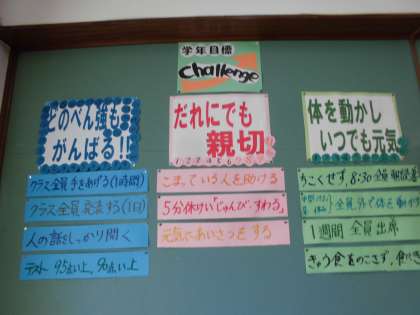 学年目標
Challenge
どのべん強も
がんばる!!
クラス全員手をあげる(1時間)
クラス全員発表する(1日)
人の話をしっかり聞く
テスト 95点以上、90点以上
だれにでも
親切
こまっている人を助ける
5分休けい「じゅんび・すわる」
元気にあいさつをする
体を動かし
いつでも元気
ちこくせず、8:30全員
全員外で体を動
1週間 全員出席
きゅう食をのこさず、食